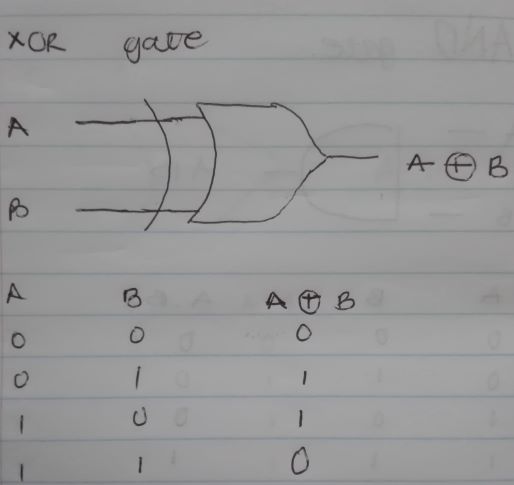 XOR gate
A
A ⊕ B
B
A B A ⊕ B
0 0 0
0 1 1
1 0 1
1 1 0